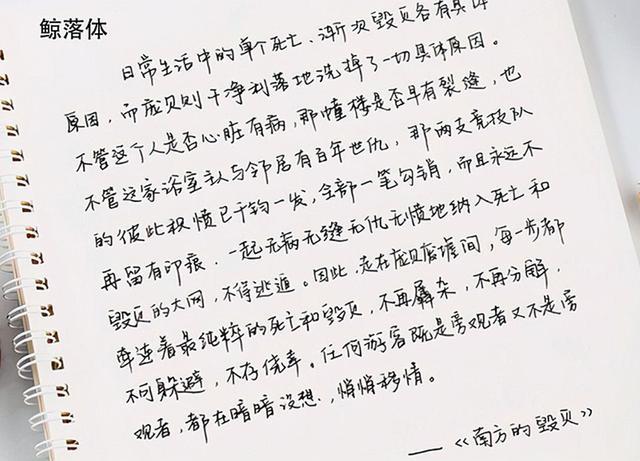 鲸落体
日常生活中的单个死亡、渐次毁灭各有具体
原因，而庞贝则干净利落地洗掉了一切具体原因。
不管这个人是否心脏有病，那幢楼是否早有裂缝，也
不管这家浴室主人与邻居有百年世仇，那两支竞技队
的彼此积愤已千钧一发，全部一笔勾销，而且永远不
再留有印痕。一起无病无缝无仇无愤地纳入死亡和
毁灭的大网，不得逃遁。因此，走在庞贝废墟间，每一步都
牵连着最纯粹的死亡和毁灭，不再羼杂，不再分解，
不可躲避，不存侥幸。任何游客既是旁观者又不是旁
观者，都在暗暗设想，悄悄移情。
——《南方的毁灭》